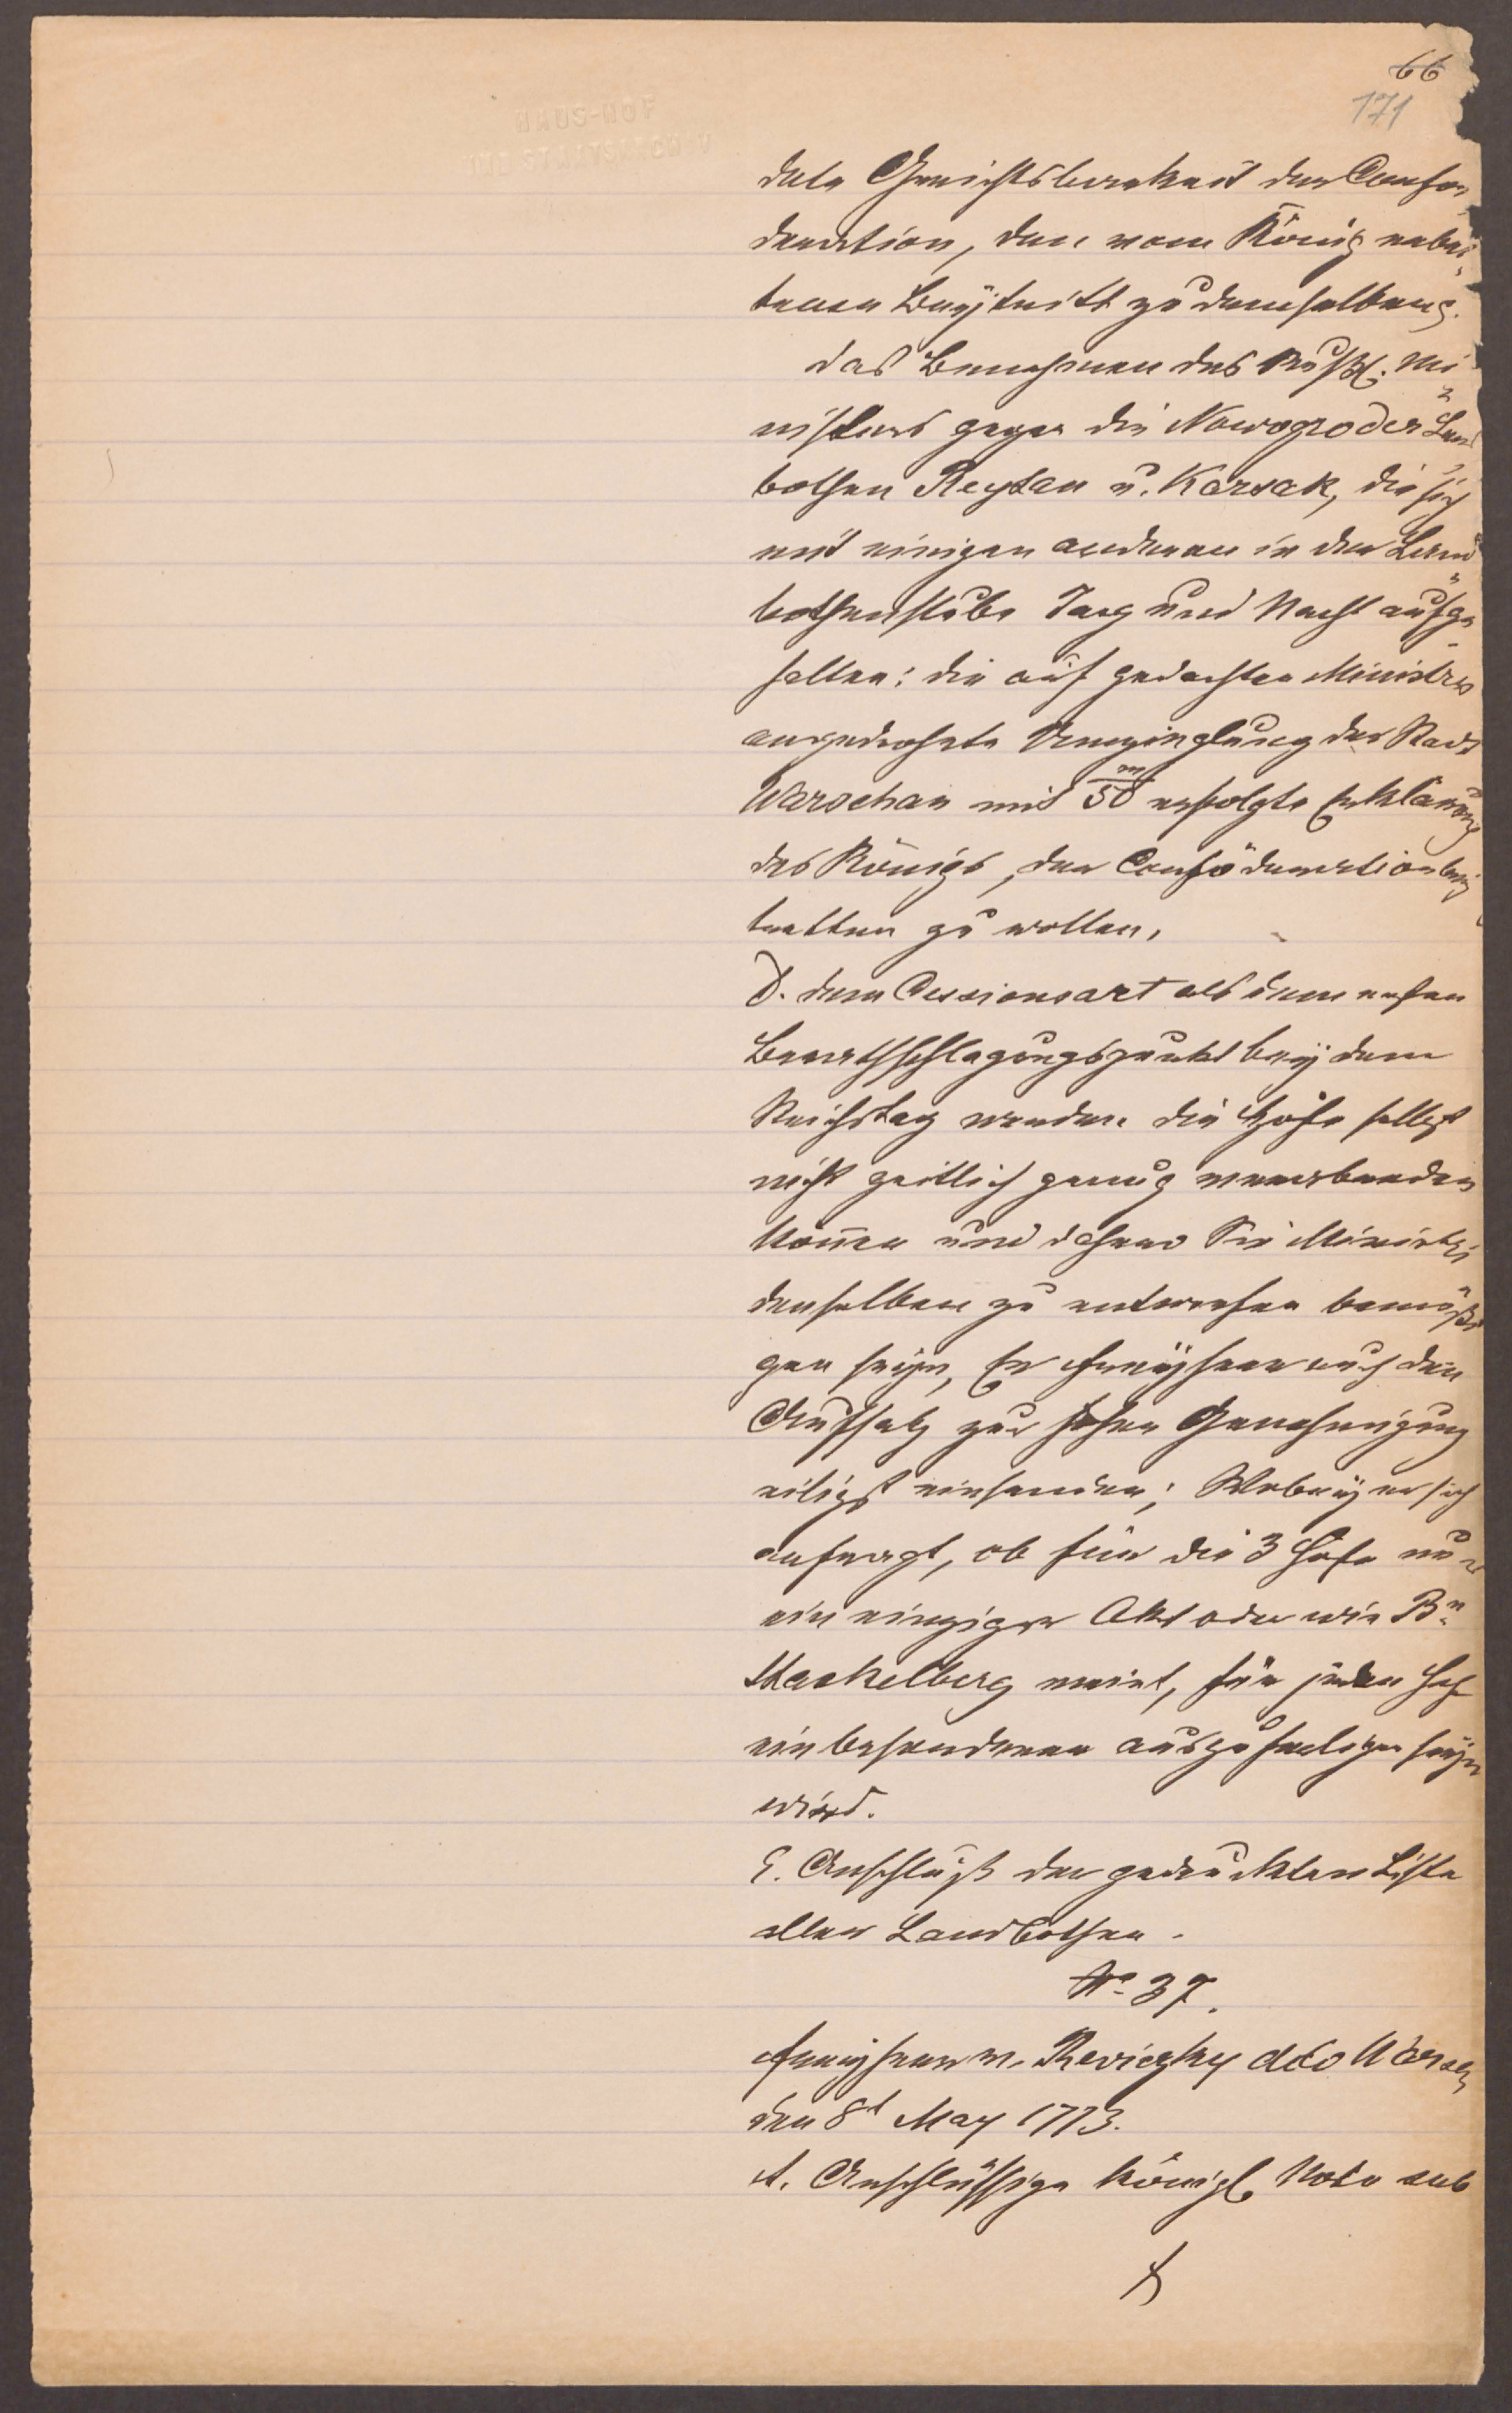 66
171
dete Gerichtsbarkeit der Confoe-
deration, den vom König erbet-
tenen Beÿtritt zu demselben.
das Benehmen des Russ. Mi-
nisters gegen die Nowogroder Land
bothen Reytan u. Korsak, die sich
mit einigen anderen in der Land-
bothenstube Tag und Nacht aufge-
halten: die auf gedachten Ministers
angedrohete Umzinglung der Stadt
Warschau mit 50 m erfolgte Erklärung
des Königs, der Confoederation beÿ
tretten zu wollen,
D. dem Cessionsact als dem ersten
Berathschlagungspunkt beÿ dem
Reichstag werden die Höfe selbst
nicht zeitlich genug
können und daher die Ministri
denselben zu entwerfen bemüßi-
get seÿn, Er Freÿherr auch den
Aufsatz zur hohen Genehmigung
eiligst einsenden; Wobeÿ er sich
anfragt, ob für die 3 Höfe nur
ein einziger Akt oder wie Bn
Stackelberg meint, für jeden Hof
ein besonderer auszufertigen seÿn
wird.
E. Anschluß der gedruckten Liste
aller Landbothen.
No 37.
Freÿherr v. Reviczky dto Warsch
den 8t May 1773.
A. Anschlüssige Königl Note sub